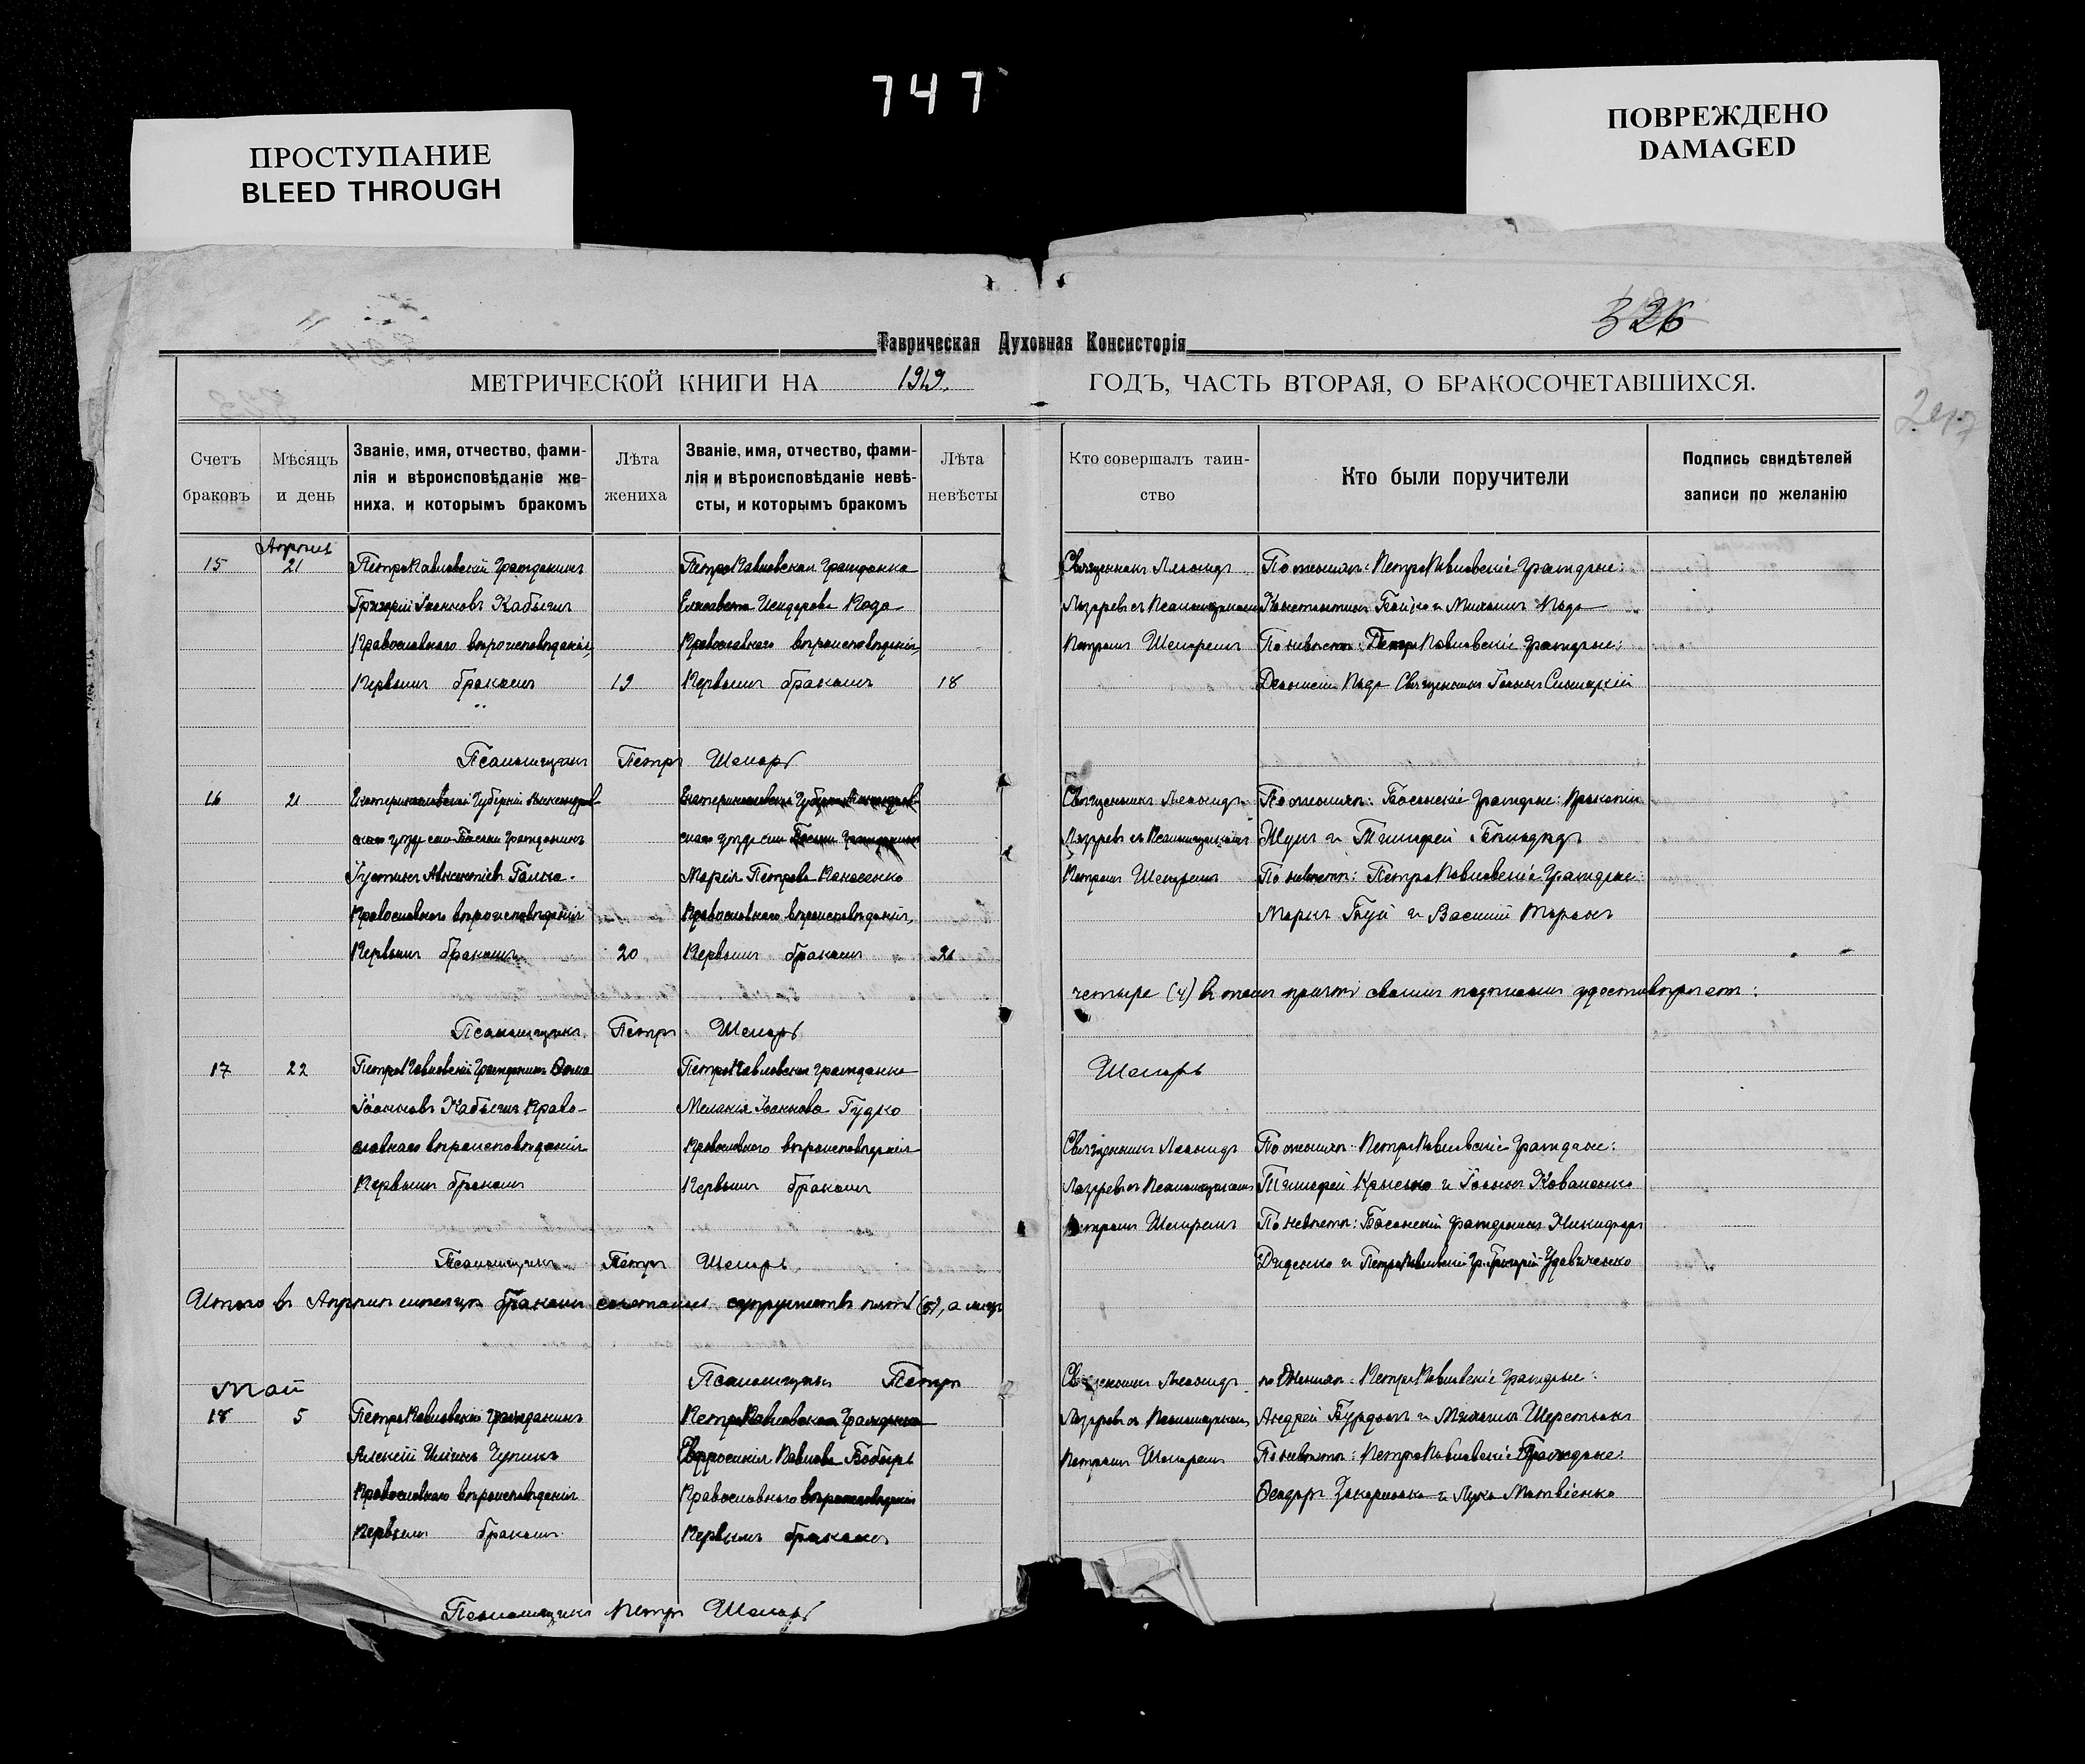 747
ПРОСТУПАНИЕ
BLEED THROUGH
ПОВРЕЖДЕНО
DAMAGED
326
Таврическая Духовная Консисторія
МЕТРИЧЕСКОЙ КНИГИ НА 1919. ГОДЪ, ЧАСТЬ ВТОРАЯ, О БРАКОСОЧЕТАВШИХСЯ.
Счетъ браковъ
Мѣсяцъ и день
Званіе, имя, отчество, фами-
лія и вѣроисповѣданіе же-
ниха, и которымъ бракомъ
Лѣта жениха
Званіе, имя, отчество, фами-
лія и вѣроисповѣданіе невѣ-
сты, и которымъ бракомъ
Лѣта невѣсты
Кто совершалъ таин-
ство
Кто были поручители
Подпись свидѣтелей
записи по желанію
Апрѣль
15 21 ПетроПавловскій гражданинъ
Григорій Іоанновъ Кабычъ
Православнаго вѣроисповѣданія,
Первымъ бракомъ 19
ПетроПавловская гражданка
Елисавета Исидорова
Православнаго вѣроисповѣданія,
Первымъ бракомъ 18
Священникъ Леонидъ
Лазаревъ съ Псаломщикомъ
Петромъ Шепаремъ
По женихѣ: ПетроПавловскіе граждане:
Константинъ и Михаилъ
По невѣстѣ: ПетроПавловскіе граждане:
Священникъ Іоаннъ
Псаломщикъ Петръ Шепарь
16 21 Екатеринославской Губерніи Александров-
скаго уѣзда гражданинъ
Іустинъ
Православнаго вѣроисповѣданія
Первымъ бракомъ 20
Екатеринославской Губерніи Александров-
скаго уѣзда
Марія Петрова Панасенко
Православнаго вѣроисповѣданія,
Первымъ бракомъ 21
Священникъ Леонидъ
Лазаревъ съ Псаломщикомъ
Петромъ Шепаремъ
По женихѣ: граждане: Прокопій
и Тимофей
По невѣстѣ: ПетроПавловскіе граждане:
и Василій Таранъ
четыре (4) въ томъ причтъ своимъ подписомъ удостовѣряетъ:
Псаломщикъ Петръ Шепарь
Шепарь
17 22 ПетроПавловскій гражданинъ Ѳома
Іоанновъ Кабычъ Право-
славнаго вѣроисповѣданія
Первымъ бракомъ
ПетроПавловская гражданка
Меланія Іоаннова Гудко
Православнаго вѣроисповѣданія
Первымъ бракомъ
Священникъ Леонидъ
Лазаревъ съ Псаломщикомъ
Петромъ Шепаремъ
По женихѣ: ПетроПавловскіе граждане:
Тимофей и Іоаннъ Коваленко
По невѣстѣ: гражданинъ Никифоръ
Диденко и ПетроПавловскій гр. Григорій Удовиченко
Псаломщикъ Петръ Шепарь
Итого въ Апрѣлѣ мѣсяцѣ бракомъ сочетаны супружествъ пять (5), а листъ
Псаломщикъ Петръ
Май
18 5 ПетроПавловскій гражданинъ
Алексій Иліинъ Чупикъ
Православнаго вѣроисповѣданія
Первымъ бракомъ
ПетроПавловская гражданка
Евфросинія Павлова Бобырь
Православнаго вѣроисповѣданія
Первымъ бракомъ
Священникъ Леонидъ
Лазаревъ съ Псаломщикомъ
Петромъ Шепаремъ
по женихѣ: ПетроПавловскіе граждане:
Андрей и Михаилъ
По невѣстѣ: ПетроПавловскіе граждане:
Ѳеодоръ и Лука Матвіенко
Псаломщикъ Петръ Шепарь